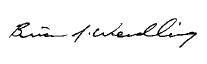 Brian J. Wendling